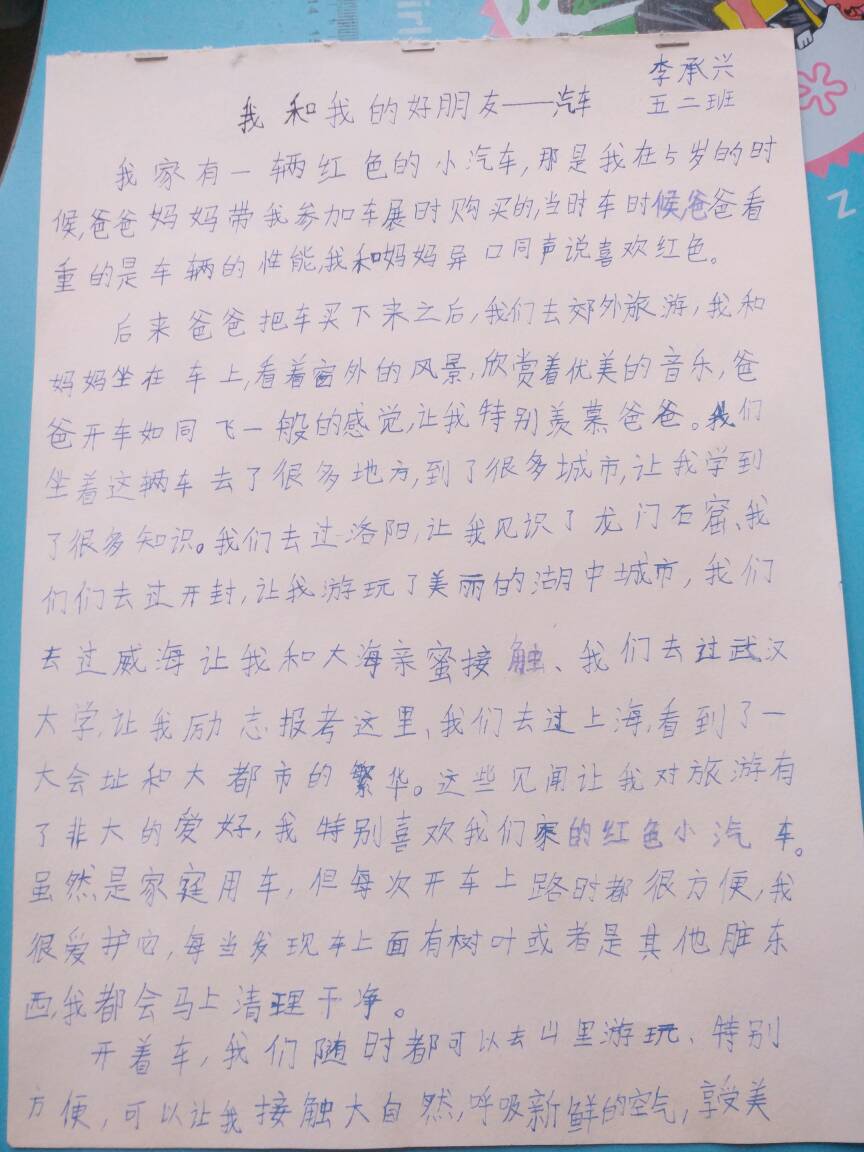 李承兴
我和我的好朋友——汽车 五二班
我家有一辆红色的小汽车,那是我在5岁的时
候,爸爸妈妈带我参加车展时购买的,当时车时候,爸爸看
重的是车辆的性能,我和妈妈异口同声说喜欢红色。
后来爸爸把车买下来之后,我们去郊外旅游,我和
妈妈坐在车上,看着窗外的风景,欣赏着优美的音乐,爸
爸开车如同飞一般的感觉,让我特别羡慕爸爸。我们
坐着这辆车去了很多地方,到了很多城市,让我学到
了很多知识。我们去过洛阳,让我见识了龙门石窟、我
们们去过开封,让我游玩了美丽的湖中城市,我们
去过威海让我和大海亲蜜接触、我们去过武汉
大学,让我励志报考这里、我们去过上海,看到了一
大会址和大都市的繁华。这些见闻让我对旅游有
了非大的爱好,我特别喜欢我们家的红色小汽车。
虽然是家庭用车,但每次开车上路时都很方便,我
很爱护它,每当发现车上面有树叶或者是其他脏东
西,我都会马上清理干净。
开着车,我们随时都可以去山里游玩、特别
方便,可以让我接触大自然,呼吸新鲜的空气,享受美